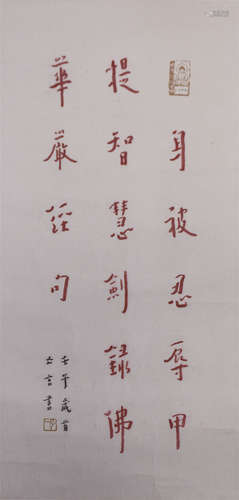 身被忍辱甲
提智慧劍錄佛
華嚴經句
歲首
書